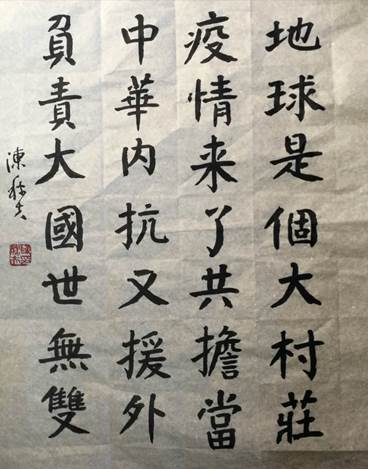 地球是個大村莊
疫情来了共擔當
中華内抗又援外
負責大國世無雙